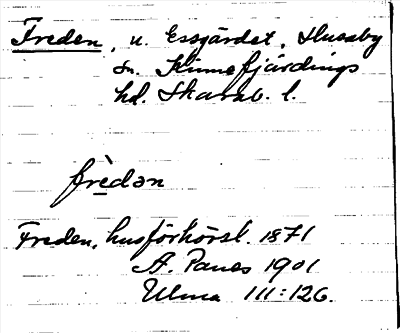 Freden, u. Essgärdet, Husaby
sn. Kinnefjärdings
hd. Skarab. l.
frèdən
Freden, husförhörsl. 1871
A. Panes 1901
Ulma 111:126.